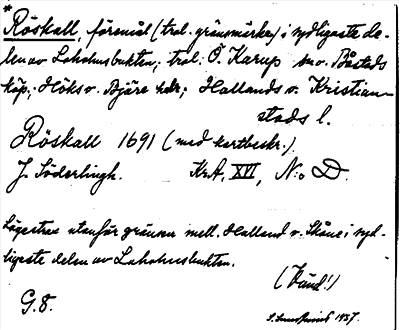 * Röskall, föremål (trol. gränsmärke) i sydligaste de-
len av Laholmsbukten; trol. Ö. Karup sn o. Båstads
köp.; Höks o. Bjäre hdr; Hallands o. Kristian-
stads l.
Röskall 1691 (med kartbeskr.)
J. Söderlingh. KrA, XVI, N:o D.
Lägetrue utanför gränsen mell. Halland o. Skåne i syd-
ligaste delen av Laholmsbukten.
(Känd!)
G. 8. 1937.